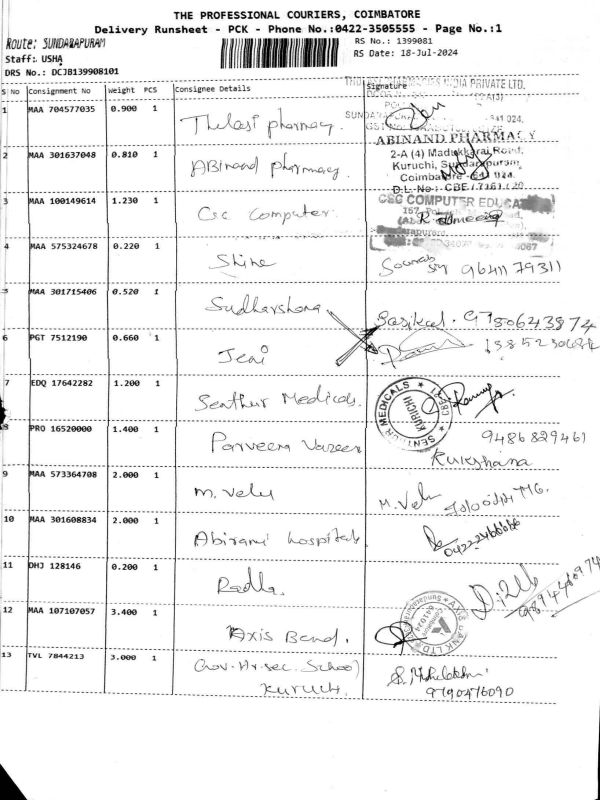 THE PROFESSIONAL COURIERS, COIMBATORE
Delivery Runsheet - PCK - Phone No.:0422-3505555 - Page No.:1
Route: SUNDARAPURAM
RS No.: 1399081
Staff: USHA
RS Date: 18-Jul-2024
DRS No.: DCJB139908101
S No Consignment No Weight PCS Consignee Details Signature
1 MAA 704577035 0.900 1 Thulasi pharmacy.
INDIA PRIVATE LTD.
2 MAA 301637048 0.810 1 Abinand pharmacy.
ABINAND PHARMACY
2-A (4) Madukkarai Road,
Kuruchi, Sundarapuram,
Coimbatore - 641 024.
3 MAA 100149614 1.230 1 Csc Computer.
CSC COMPUTER EDUCA
4 MAA 575324678 0.220 1 Shine
96411 79311
5 MAA 301715406 0.520 1 Sudharshana
9750643874
6 PGT 7512190 0.660 1 Jeni
7 EDQ 17642282 1.200 1 Senthur Medicals.
SENTHUR MEDICALS
KURICHI
8 PRO 16520000 1.400 1 Parveena Vazeer
9486829461
Rukshana
9 MAA 573364708 2.000 1 M. Velu
M. Velu
10 MAA 301608834 2.000 1 Abirami hospitals
11 DHJ 128146 0.200 1 Radha.
12 MAA 107107057 3.400 1 Axis Band.
AXIS BANK LTD
13 TVL 7844213 3.000 1 Gov. Hr. sec. School
Kuruchi.
9790476090